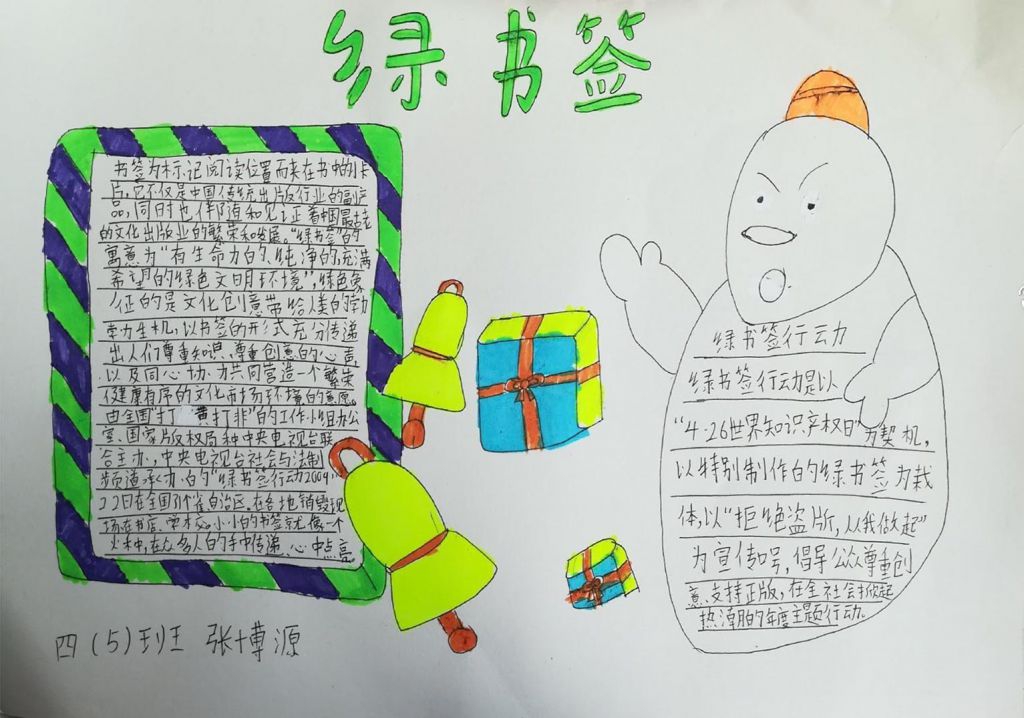 绿书签
书签为标记阅读位置而夹在书中的卡
片,它不仅是中国传统出版行业的副产
品,同时也伴随和见证着中国最古老
的文化出版业的繁荣和发展。“绿书签”的
寓意为“有生命力的、纯净的、充满
希望的绿色文明环境”,绿色象
征的是文化创意带给人类的勃
勃生机,以书签的形式充分传递
出人们尊重知识、尊重创意的心声
以及同心协力共同营造一个繁荣
健康有序的文化市场环境的意愿。
由全国“打 黄打非”的工作小组办公
室、国家版权局和中央电视台联
合主办,中央电视台社会与法制
频道承办的“绿书签行动2009”4
22日在全国31个省自治区,在各地销毁现
场在书店、学校。小小的书签就像一个
火种,在众多人的手中传递,心中点亮
四(5)班 张博源
绿书签行动
绿书签行动是以
“4·26世界知识产权日”为契机,
以特别制作的绿书签为载
体,以“拒绝盗版,从我做起”
为宣传号,倡导公众尊重创
意,支持正版,在全社会掀起
热潮的年度主题行动。